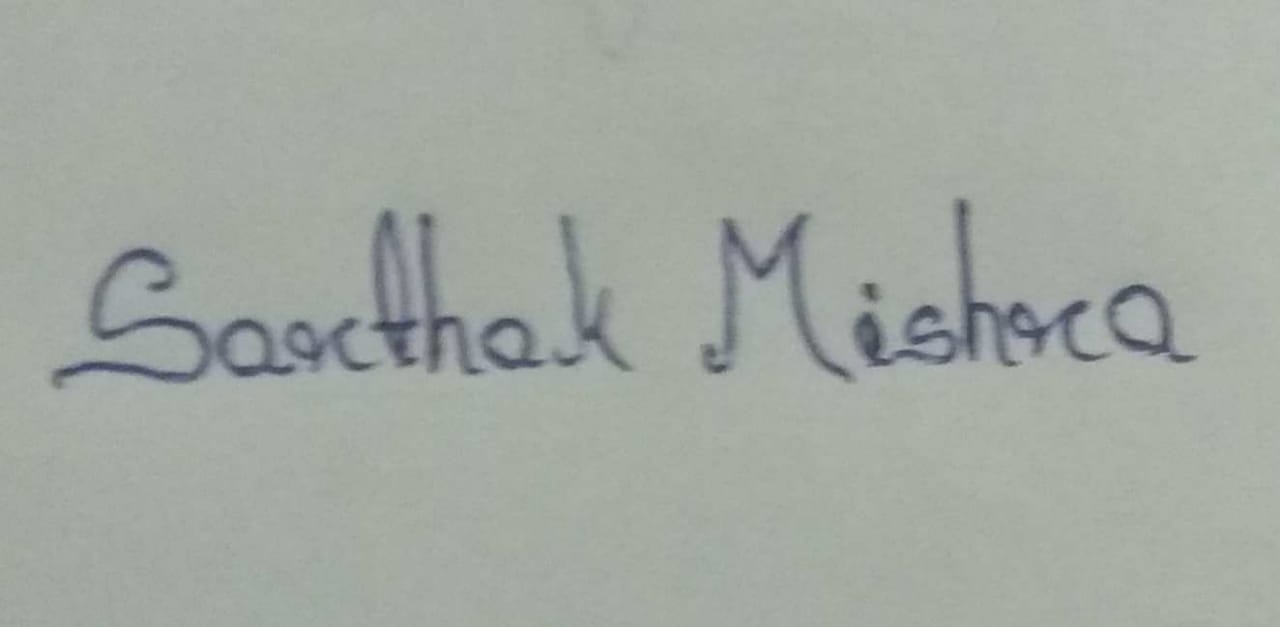 Sarthak Mishra